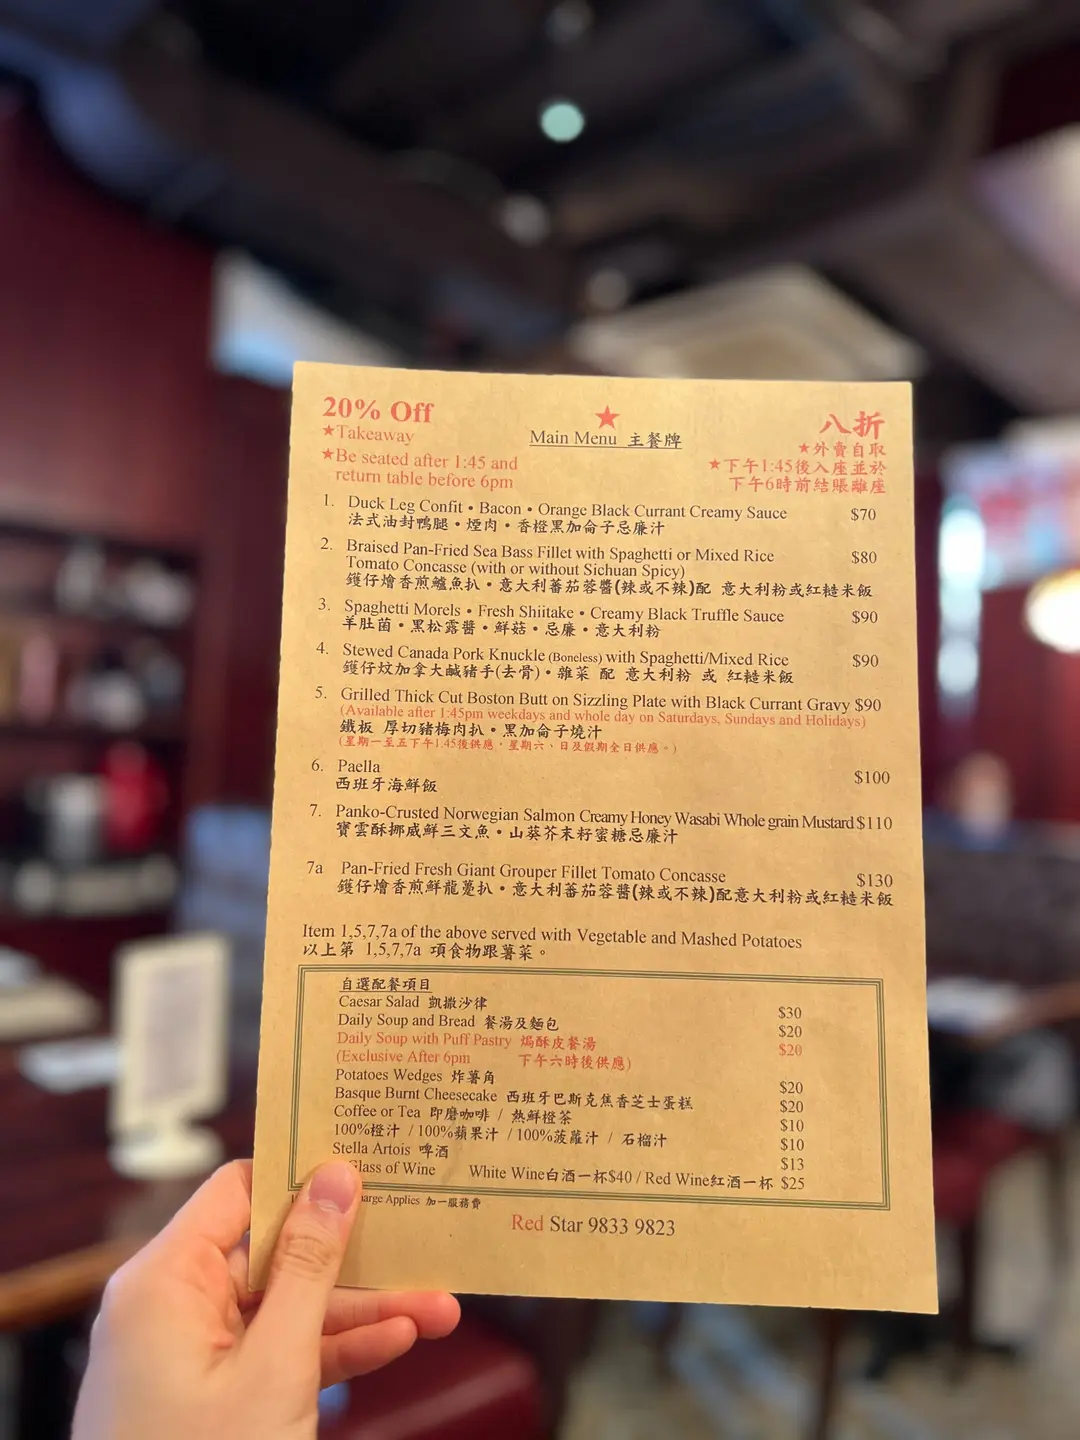 20% Off
★Takeaway
★Be seated after 1:45 and
return table before 6pm
★
Main Menu 主餐牌
八折
★外賣自取
★下午1:45後入座並於
下午6時前結賬離座
1. Duck Leg Confit • Bacon • Orange Black Currant Creamy Sauce $70
法式油封鴨腿•煙肉•香橙黑加侖子忌廉汁
2. Braised Pan-Fried Sea Bass Fillet with Spaghetti or Mixed Rice $80
Tomato Concasse (with or without Sichuan Spicy)
鑊仔燴香煎鱸魚扒•意大利蕃茄蓉醬(辣或不辣)配 意大利粉或紅糙米飯
3. Spaghetti Morels • Fresh Shiitake • Creamy Black Truffle Sauce $90
羊肚菌•黑松露醬•鮮菇•忌廉•意大利粉
4. Stewed Canada Pork Knuckle (Boneless) with Spaghetti/Mixed Rice $90
鑊仔炆加拿大鹹豬手(去骨)•雜菜 配 意大利粉 或 紅糙米飯
5. Grilled Thick Cut Boston Butt on Sizzling Plate with Black Currant Gravy $90
(Available after 1:45pm weekdays and whole day on Saturdays, Sundays and Holidays)
鐵板 厚切豬梅肉扒•黑加侖子燒汁
(星期一至五下午1:45後供應，星期六、日及假期全日供應。)
6. Paella $100
西班牙海鮮飯
7. Panko-Crusted Norwegian Salmon Creamy Honey Wasabi Whole grain Mustard $110
寶雲酥挪威鮮三文魚•山葵芥末籽蜜糖忌廉汁
7a Pan-Fried Fresh Giant Grouper Fillet Tomato Concasse $130
鑊仔燴香煎鮮龍躉扒•意大利蕃茄蓉醬(辣或不辣)配意大利粉或紅糙米飯
Item 1,5,7,7a of the above served with Vegetable and Mashed Potatoes
以上第 1,5,7,7a 項食物跟薯菜。
自選配餐項目
Caesar Salad 凱撒沙律 $30
Daily Soup and Bread 餐湯及麵包 $20
Daily Soup with Puff Pastry 焗酥皮餐湯 $20
(Exclusive After 6pm 下午六時後供應)
Potatoes Wedges 炸薯角 $20
Basque Burnt Cheesecake 西班牙巴斯克焦香芝士蛋糕 $20
Coffee or Tea 即磨咖啡 / 熱鮮橙茶 $10
100%橙汁 / 100%蘋果汁 / 100%菠蘿汁 / 石榴汁 $10
Stella Artois 啤酒 $13
Glass of Wine White Wine白酒一杯$40 / Red Wine紅酒一杯 $25
Applies 加一服務費
Red Star 9833 9823